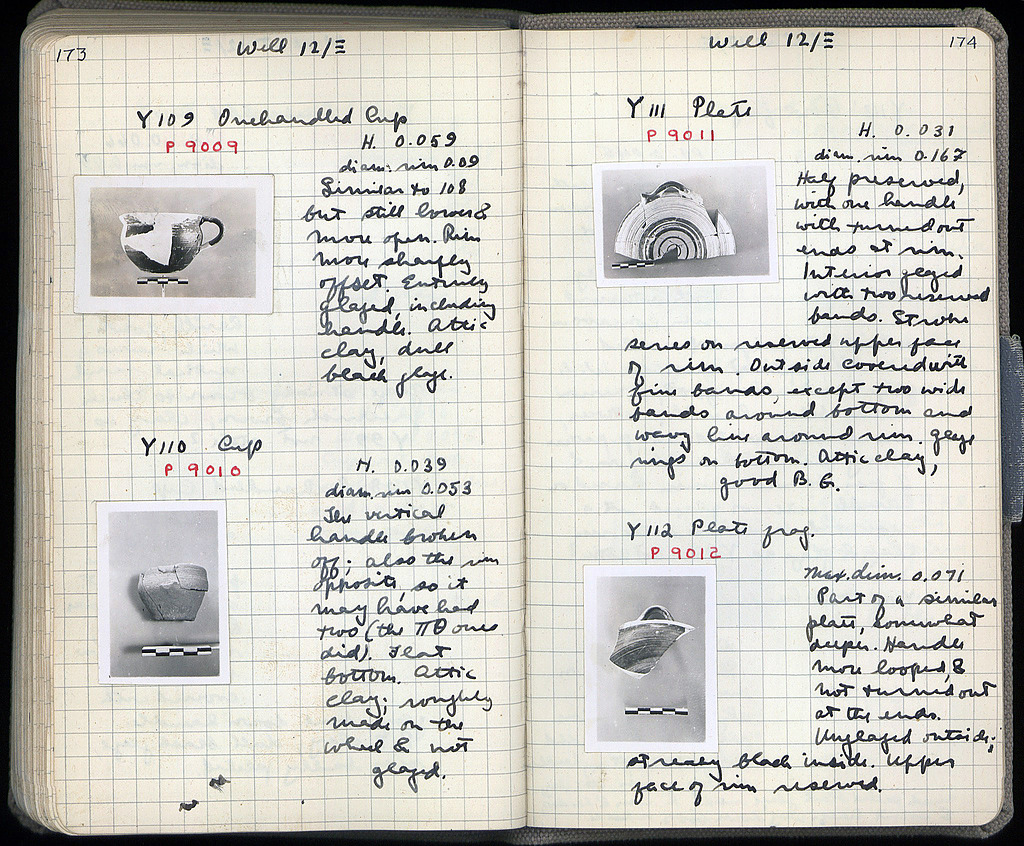 173
Well 12/Ξ
Y109 Onehandled Cup
P 9009
H. 0.059
diam. rim 0.09
Similar to 108
but still lower &
more open. Rim
more sharply
offset. Entirely
glazed, including
handle. Attic
clay, dull
black glaze.
Y110 Cup
P 9010
H. 0.039
diam. rim 0.053
The vertical
handle broken
off; also the rim
opposite, so it
may have had
two (the ΠΘ ones
did). Flat
bottom. Attic
clay; roughly
made on the
wheel & not
glazed.
Well 12/Ξ
174
Y111 Plate
P 9011
H. 0.031
diam. rim 0.167
Half preserved,
with one handle
with turned out
ends at rim.
Interior glazed
with two reserved
bands. Stroke
series on reserved upper face
of rim. Outside covered with
fine bands, except two wide
bands around bottom and
wavy line around rim. glaze
rings on bottom. Attic clay,
good B. G.
Y112 Plate frag.
P 9012
Max. dim. 0.071
Part of a similar
plate, somewhat
deeper. Handle
more looped, &
not turned out
at the ends.
Unglazed outside;
streaky black inside. Upper
face of rim reserved.